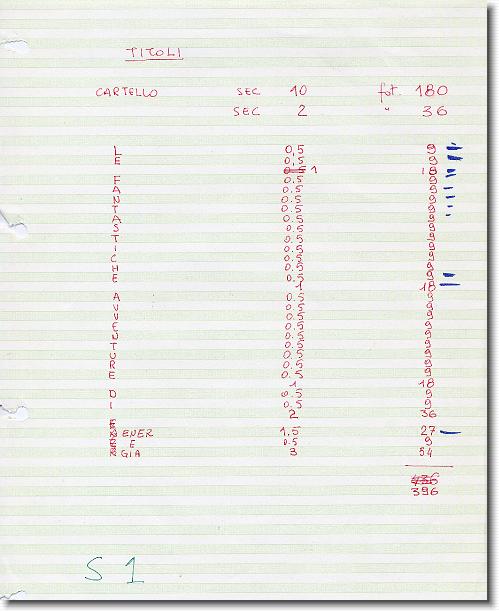 TITOLI
CARTELLO SEC 10 fot. 180
SEC 2 " 36
L 0,5 9
E 0,5 9
0.5 1 18
F 0.5 9
A 0.5 9
N 0.5 9
T 0.5 9
A 0.5 9
S 0.5 9
T 0.5 9
I 0.5 9
C 0.5 9
H 0.5 9
E 0.5 9
1 18
A 0.5 9
V 0.5 9
V 0.5 9
E 0.5 9
N 0.5 9
T 0.5 9
U 0.5 9
R 0.5 9
E 0.5 9
1 18
D 0.5 9
I 0.5 9
2 36
ENER 1.5 27
E 0.5 9
GIA 3 54
436
396
S 1